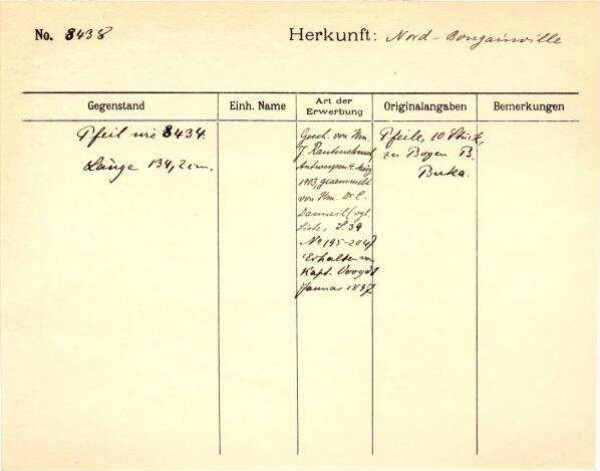 No. 8438 Herkunft: Nord-Bougainville
Gegenstand
Einh. Name
Art der
Erwerbung
Originalangaben
Bemerkungen
Pfeil wie 8434.
Länge 134,2 cm.
Gesch. von Hrn.
J. Rautenstrauch
Antwerpen 4. März
1903, gesammelt
von Hrn. Dr. C.
(vgl.
Liste, S. 39
No 195-204)
Erhalten von
Kapt. Voogdt
Januar 1897
Pfeile, 10 Stück,
zu Bogen B.
Buka.